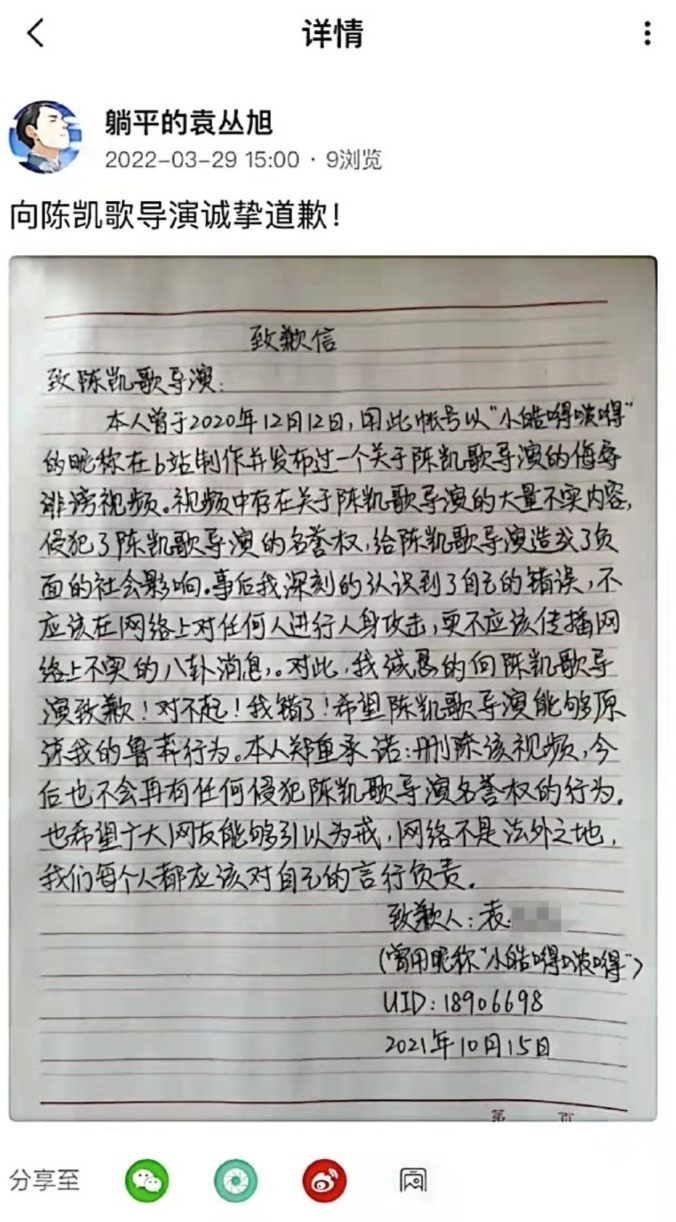 详情
躺平的袁丛旭
2022-03-29 15:00 · 9浏览
向陈凯歌导演诚挚道歉！
致歉信
致陈凯歌导演：
本人曾于2020年12月12日，用此帐号以“小皓嘚啵嘚”
的昵称在b站制作并发布过一个关于陈凯歌导演的侮辱
诽谤视频。视频中存在关于陈凯歌导演的大量不实内容，
侵犯了陈凯歌导演的名誉权，给陈凯歌导演造成了负
面的社会影响。事后我深刻的认识到了自己的错误，不
应该在网络上对任何人进行人身攻击，更不应该传播网
络上不实的八卦消息，。对此，我诚恳的向陈凯歌导
演致歉！对不起！我错了！希望陈凯歌导演能够原
谅我的鲁莽行为。本人郑重承诺：删除该视频，今
后也不会再有任何侵犯陈凯歌导演名誉权的行为。
也希望广大网友能够引以为戒，网络不是法外之地，
我们每个人都应该对自己的言行负责。
致歉人：袁
（曾用昵称“小皓嘚啵嘚”）
UID：18906698
2021年10月15日
第 页
分享至